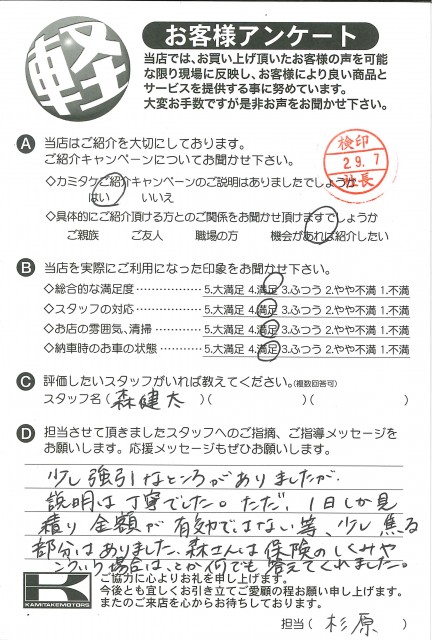 軽
お客様アンケート
当店では、お買い上げ頂いたお客様の声を可能
な限り現場に反映し、お客様により良い商品と
サービスを提供する事に努めています。
大変お手数ですが是非お声をお聞かせ下さい。
A 当店はご紹介を大切にしております。
ご紹介キャンペーンについてお聞かせ下さい。
検印
29.7
社長
◇カミタケご紹介キャンペーンのご説明はありましたでしょうか
はい いいえ
◇具体的にご紹介頂ける方とのご関係をお聞かせ頂けますでしょうか
ご親族 ご友人 職場の方 機会があれば紹介したい
B 当店を実際にご利用になった印象をお聞かせ下さい。
◇総合的な満足度 ……………… 5.大満足 4.満足 3.ふつう 2.やや不満 1.不満
◇スタッフの対応 ……………… 5.大満足 4.満足 3.ふつう 2.やや不満 1.不満
◇お店の雰囲気、清掃 ………… 5.大満足 4.満足 3.ふつう 2.やや不満 1.不満
◇納車時のお車の状態 ………… 5.大満足 4.満足 3.ふつう 2.やや不満 1.不満
C 評価したいスタッフがいれば教えてください。(複数回答可)
スタッフ名( 森健太 )( )( )
D 担当させて頂きましたスタッフへのご指摘、ご指導メッセージを
お願いします。応援メッセージもぜひお願いします。
少し強引なところがありましたが、
説明は丁寧でした。ただ、1日しか見
積り金額が有効ではない等、少し焦る
部分はありました。森さんは保険のしくみや
こういう場合は、とか何でも答えてくれました。
K
KAMITAKEMOTORS
ご協力に心よりお礼を申し上げます。
今後とも宜しくお引き立てご愛顧の程お願い申し上げます。
またのご来店を心からお待ちしております。
担当( 杉原 )